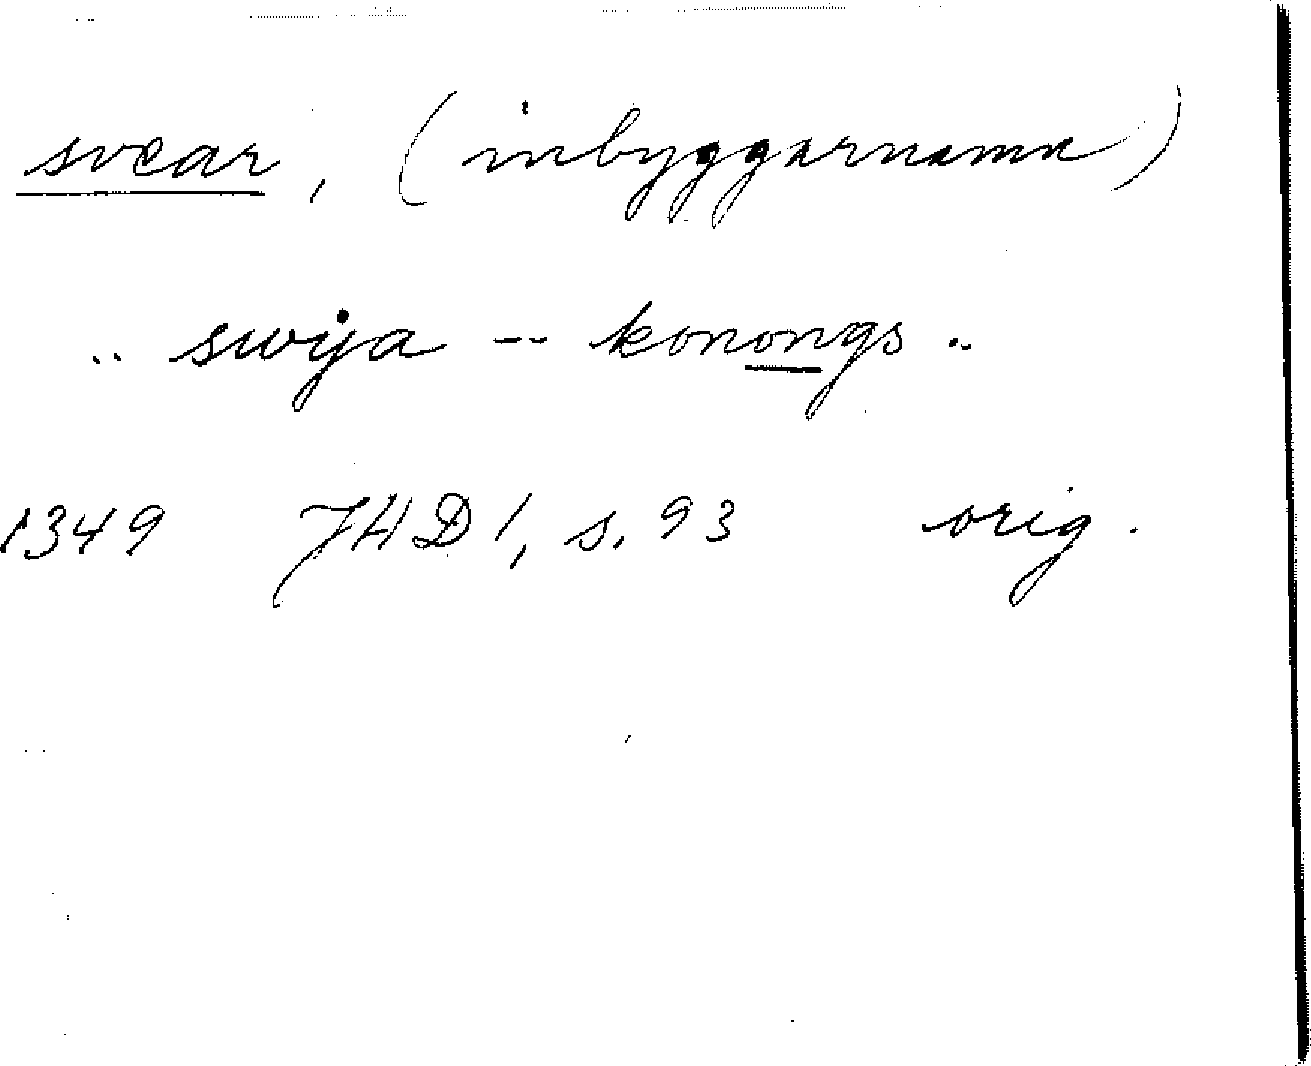 svear, (inbyggarnamn)
.. swija -- konongs ..
1349 JHD 1, s. 93 orig.